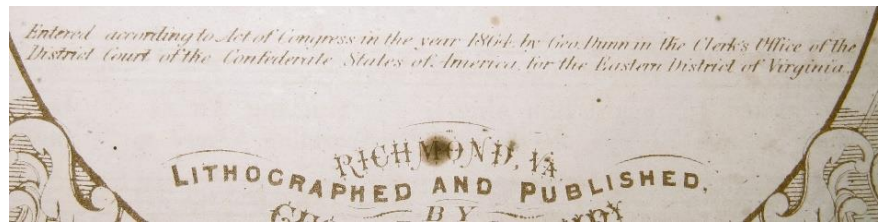 Entered according to Act of Congress in the year 1864 by Geo. Dunn in the Clerk's Office of the
District Court of the Confederate States of America for the Eastern District of Virginia.
RICHMOND, VA
LITHOGRAPHED AND PUBLISHED,
BY